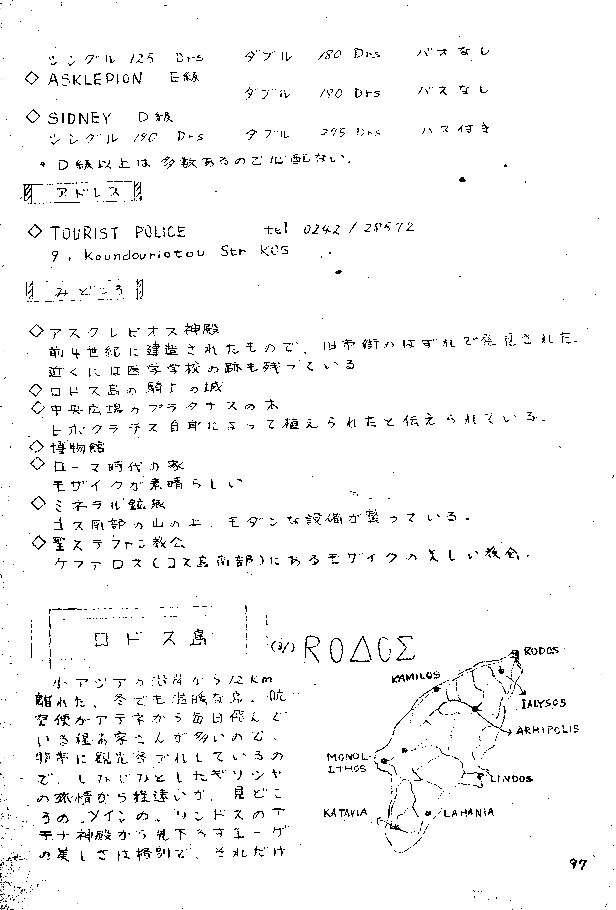 シングル 125 Drs ダブル 180 Drs バスなし
◇ ASKLEPION E級
ダブル 190 Drs バスなし
◇ SIDNEY D級
シングル 190 Drs ダブル 295 Drs バス付き
* D級以上は多数あるので心配ない.
アドレス
◇ TOURIST POLICE tel 0242 / 28572
9, Koundouriotou Str KOS
みどころ
◇ アスクレピオス神殿
前4世紀に建造されたもので、旧市街のはずれで発見された.
近くには医学学校の跡も残っている
◇ ロドス島の騎士の城
◇ 中央広場のプラタナスの木
ヒポクラテス自身によって植えられたと伝えられている.
◇ 博物館
◇ ローマ時代の家
モザイクが素晴らしい
◇ ミネラル鉱泉
コス南部の山の上. モダンな設備が整っている.
◇ 聖ステファン教会
ケファロス(コス島南部)にあるモザイクの美しい教会.
ロドス島
小アジアの沿岸から12km
離れた、冬でも温暖な島. 航
空便がアテネから毎日飛んで
いる程お客さんが多いので、
非常に観光ずれしているの
で、しみじみとしたギリシャ
の旅情から程遠いが、見どこ
ろのメインの、リンドスのア
テナ神殿から見下ろすエーゲ
の美しさは格別で、それだけ
RODOS
KAMILOS
IALYSOS
ARHIPOLIS
MONOLITHOS
LINDOS
KATAVIA
LAHANIA
97